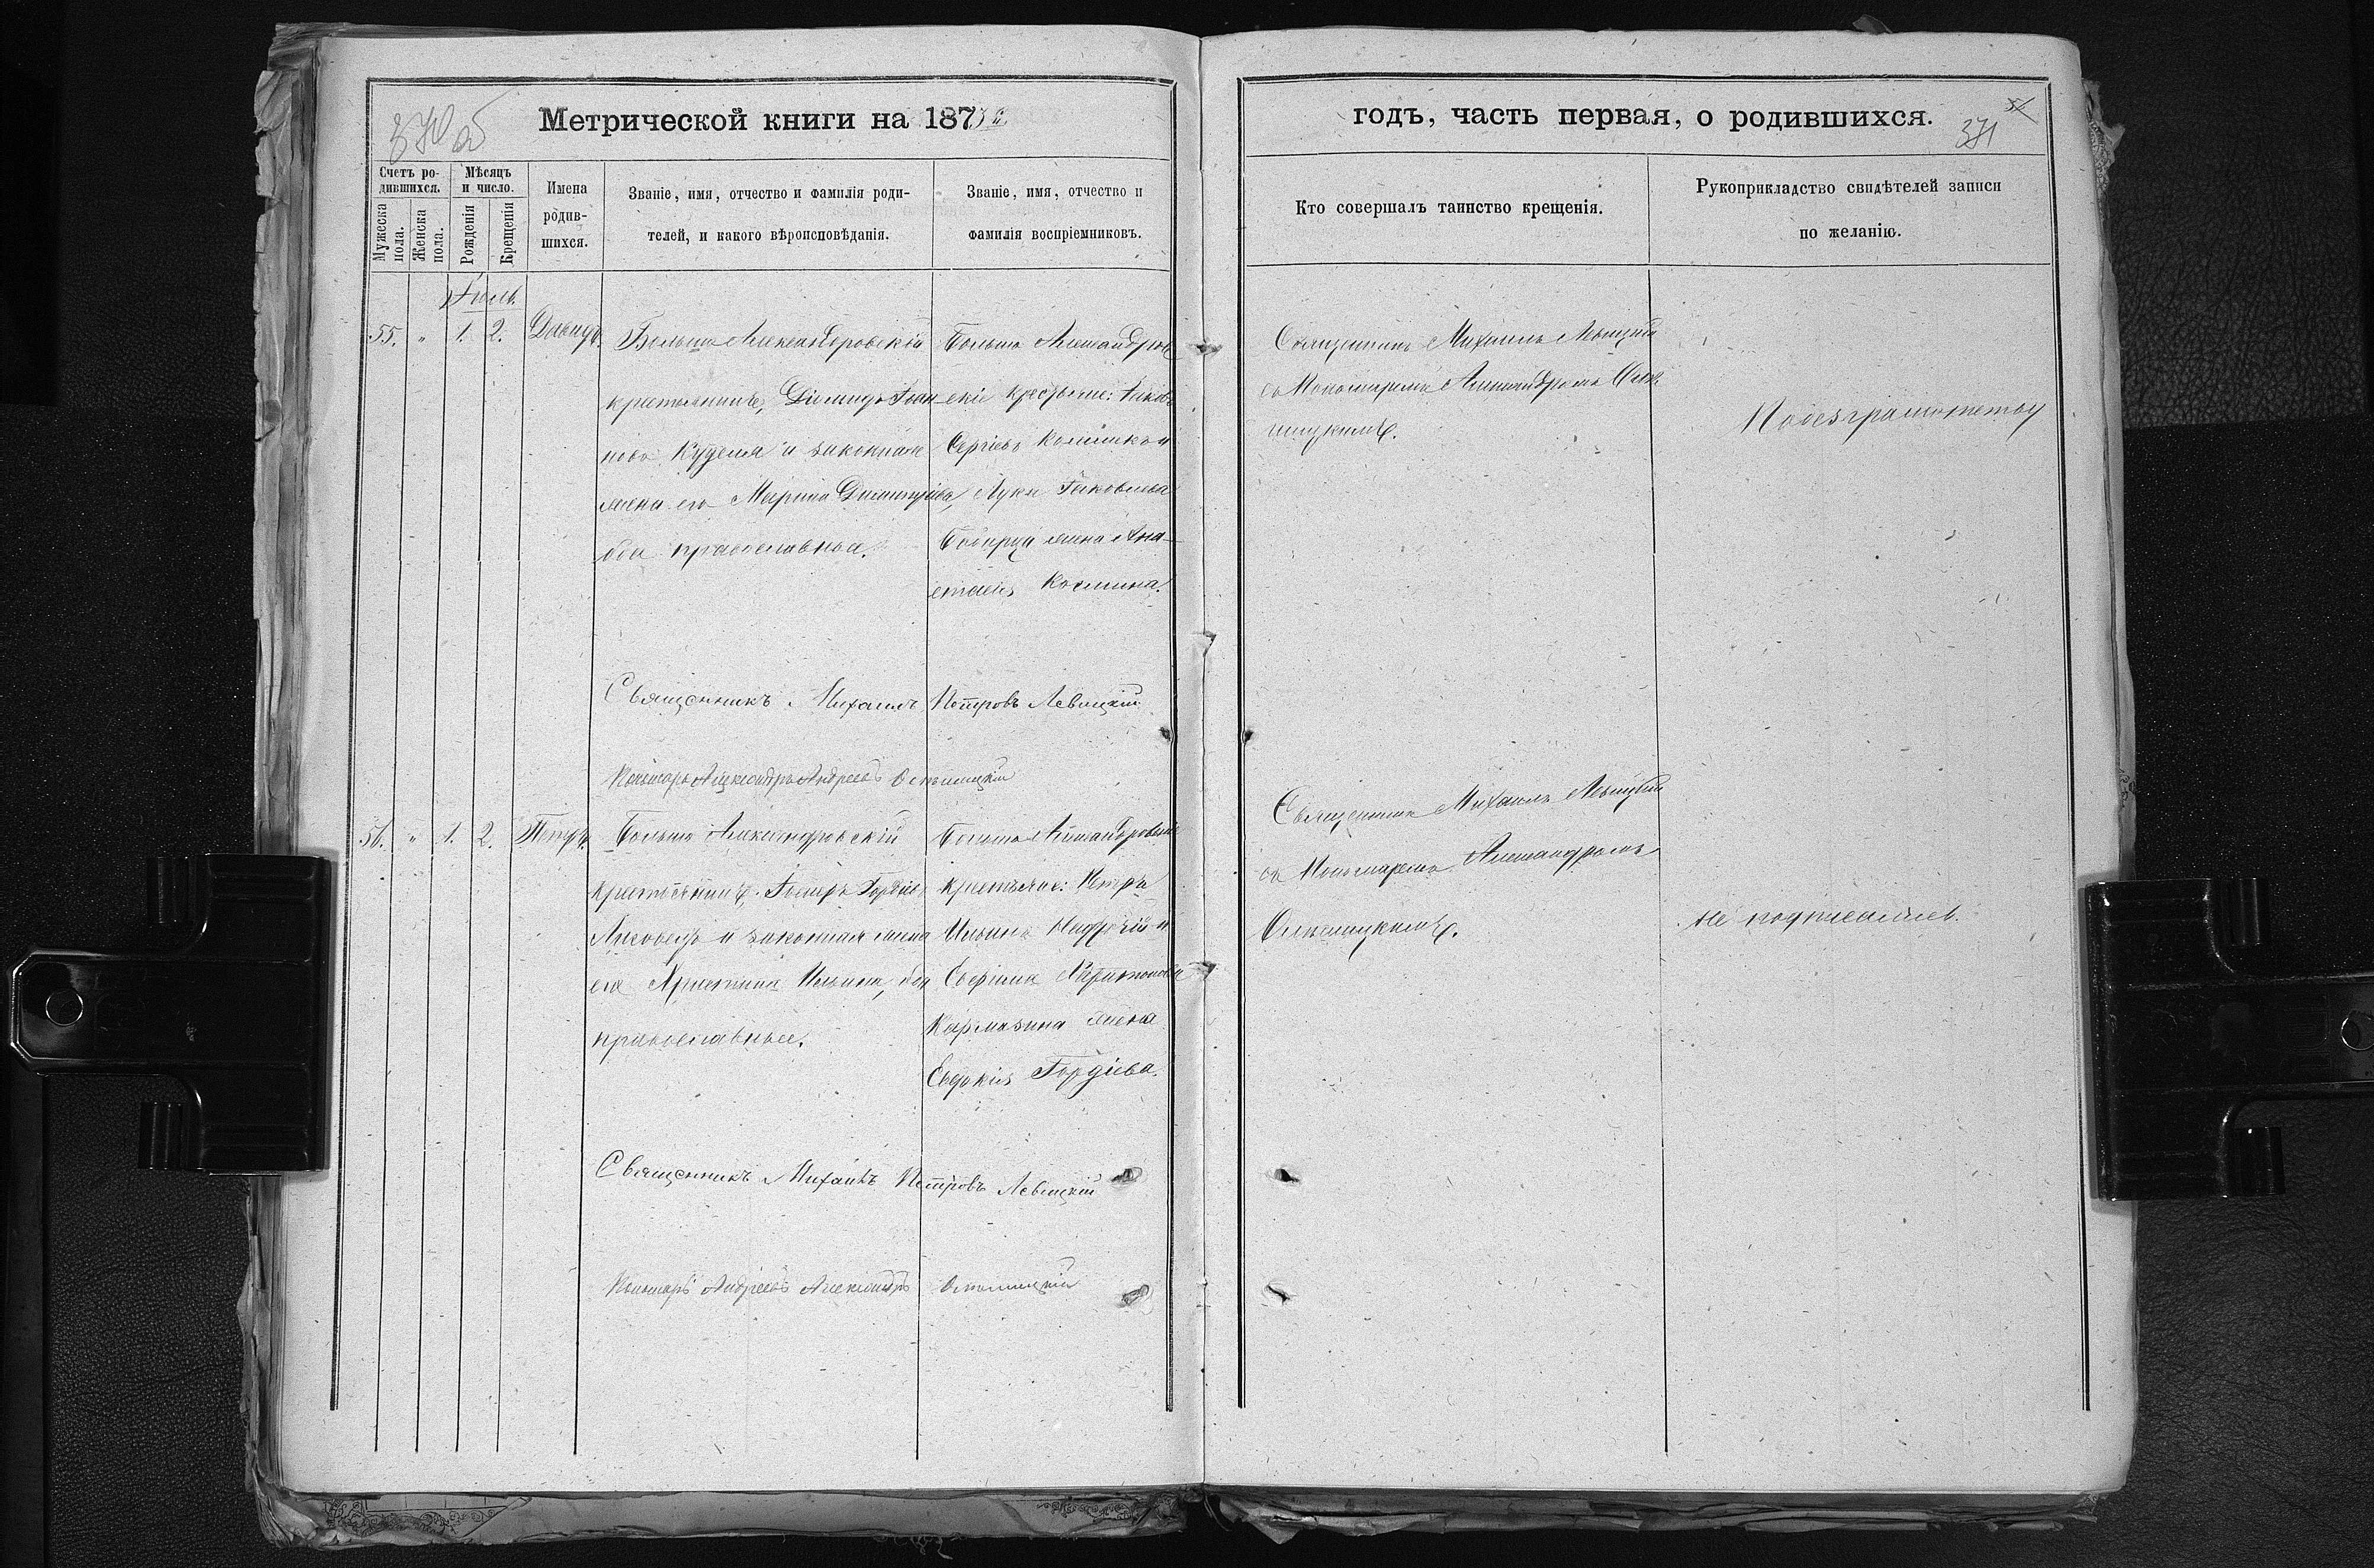 370 об
Метрической книги на 187
годъ, часть первая, о родившихся.
371
Счетъ ро-
дившихся.
Мѣсяцъ
и число.
Мужеска
пола.
Женска
пола.
Рожденія
Крещенія
Имена
родив-
шихся.
Званіе, имя, отчество и фамилія роди-
телей, и какого вѣроисповѣданія.
Званіе, имя, отчество и
фамилія воспріемниковъ.
Кто совершалъ таинство крещенія.
Рукоприкладство свидѣтелей записи
по желанію.
55. " 1. 2. Давидъ.
Больше Александровскій
крестьянинъ, Діомидъ Іоан-
новъ Кудема и законная
жена его Марина Димитріева,
оба православные.
Больше Александров-
скіе крестьяне: Іаковъ
Сергіевъ и
Луки Іаковлева
жена Ана-
стасія Космина.
Священникъ Михаилъ Левицкій
съ Пономаремъ Александромъ
По безграмотству
Священникъ Михаилъ Петровъ Левицкій
Пономарь Александръ Андреевъ
56. " 1. 2. Петръ.
Больше Александровскій
крестьянинъ,
и законная жена
его Христина Ильина, оба
православные.
Больше Александровскіе
крестьяне: Петръ
Ильинъ и
Евфима Харитонова
Кармазина жена
Евдокія Гордіева.
Священникъ Михаилъ Левицкій
съ Пономаремъ Александромъ
не подписались.
Священникъ Михаилъ Петровъ Левицкій
Пономарь Андреевъ Александръ